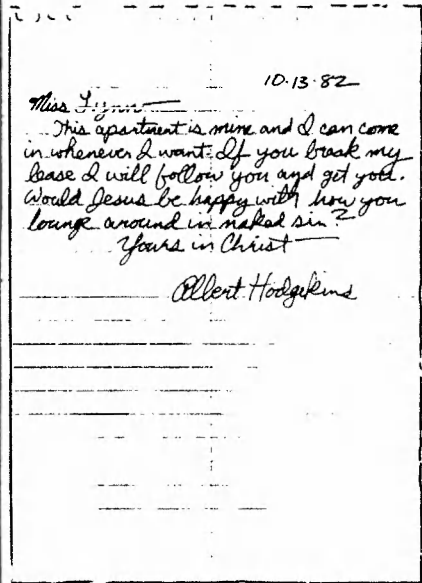 10·13·82
Miss Lynn—
This apartment is mine and I can come
in whenever I want. If you break my
lease I will follow you and get you.
Would Jesus be happy with how you
lounge around in naked sin?
Yours in Christ—
Albert Hodgekins